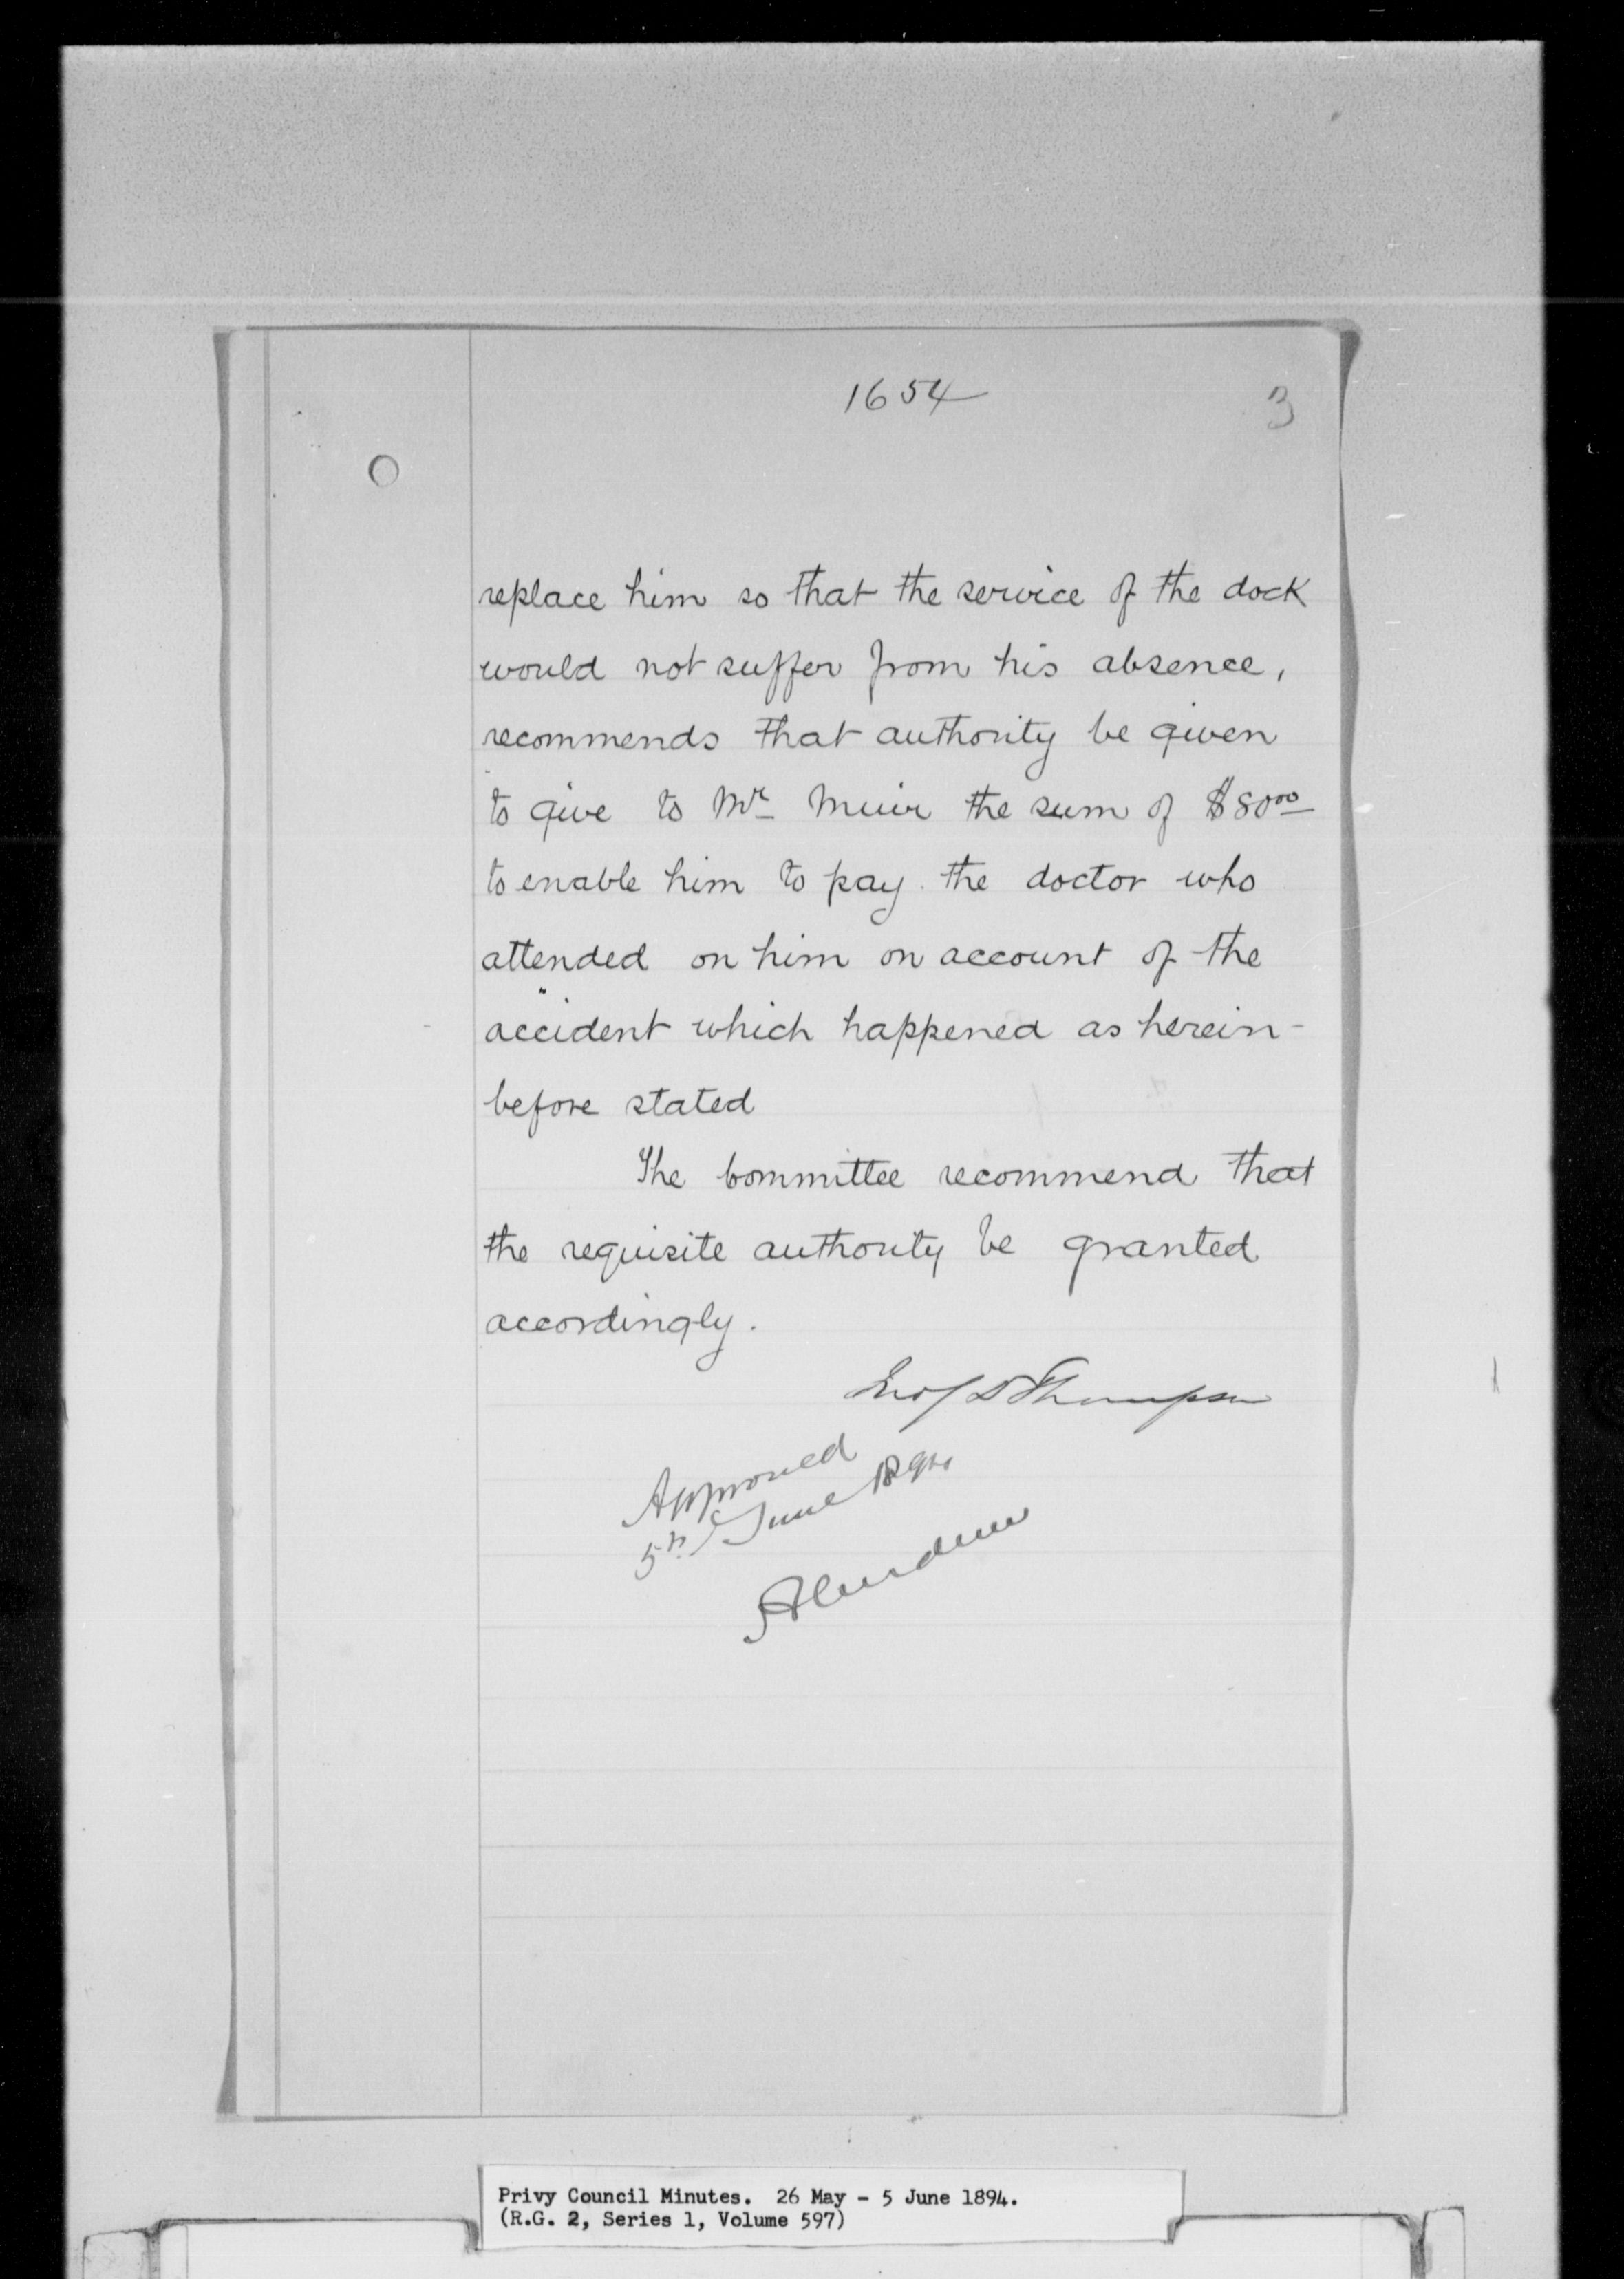 1654
3
replace him so that the service of the dock
would not suffer from his absence,
recommends that authority be given
to give to Mr Muir the sum of $80.00
to enable him to pay the doctor who
attended on him on account of the
accident which happened as herein-
before stated
The Committee recommend that
the requisite authority be granted
accordingly.
Jno S D Thompson
Approved
5th June 1894
Aberdeen
Privy Council Minutes. 26 May - 5 June 1894.
(R.G. 2, Series 1, Volume 597)